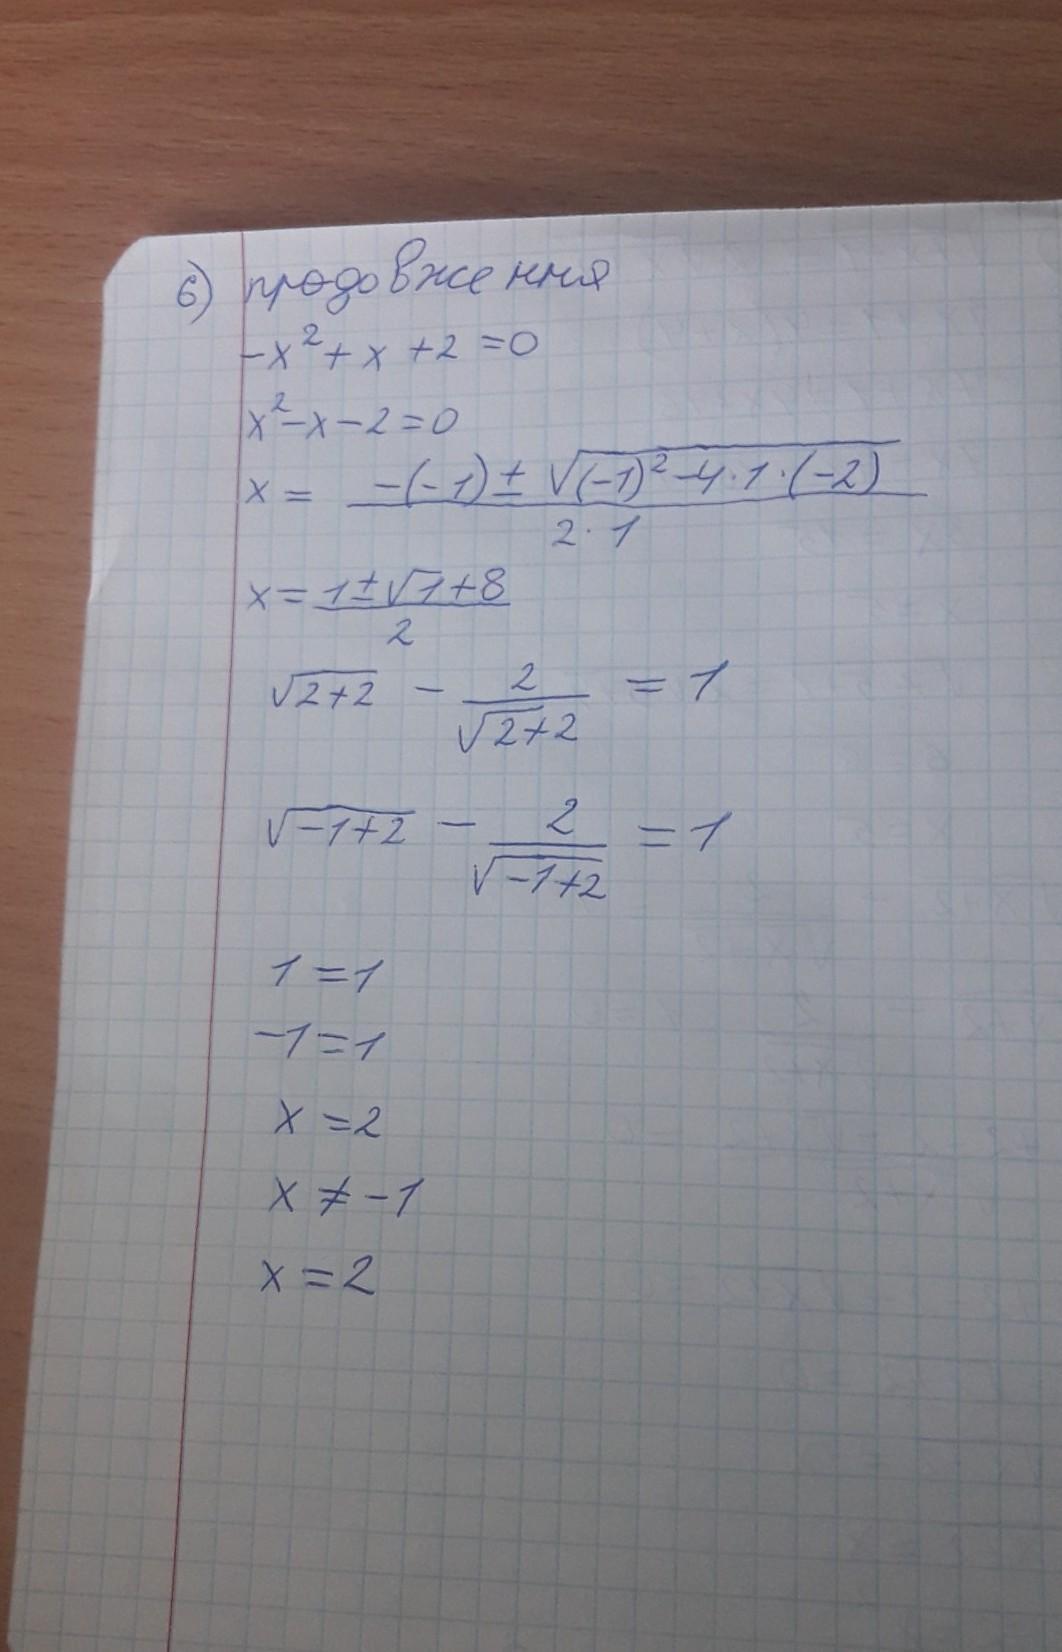 6) продовження
-x² + x + 2 = 0
x² - x - 2 = 0
x = (-(-1) ± √((-1)² - 4 · 1 · (-2))) / (2 · 1)
x = (1 ± √1 + 8) / 2
√(2+2) - 2 / (√2+2) = 1
√(-1+2) - 2 / √(-1+2) = 1
1 = 1
-1 = 1
x = 2
x ≠ -1
x = 2